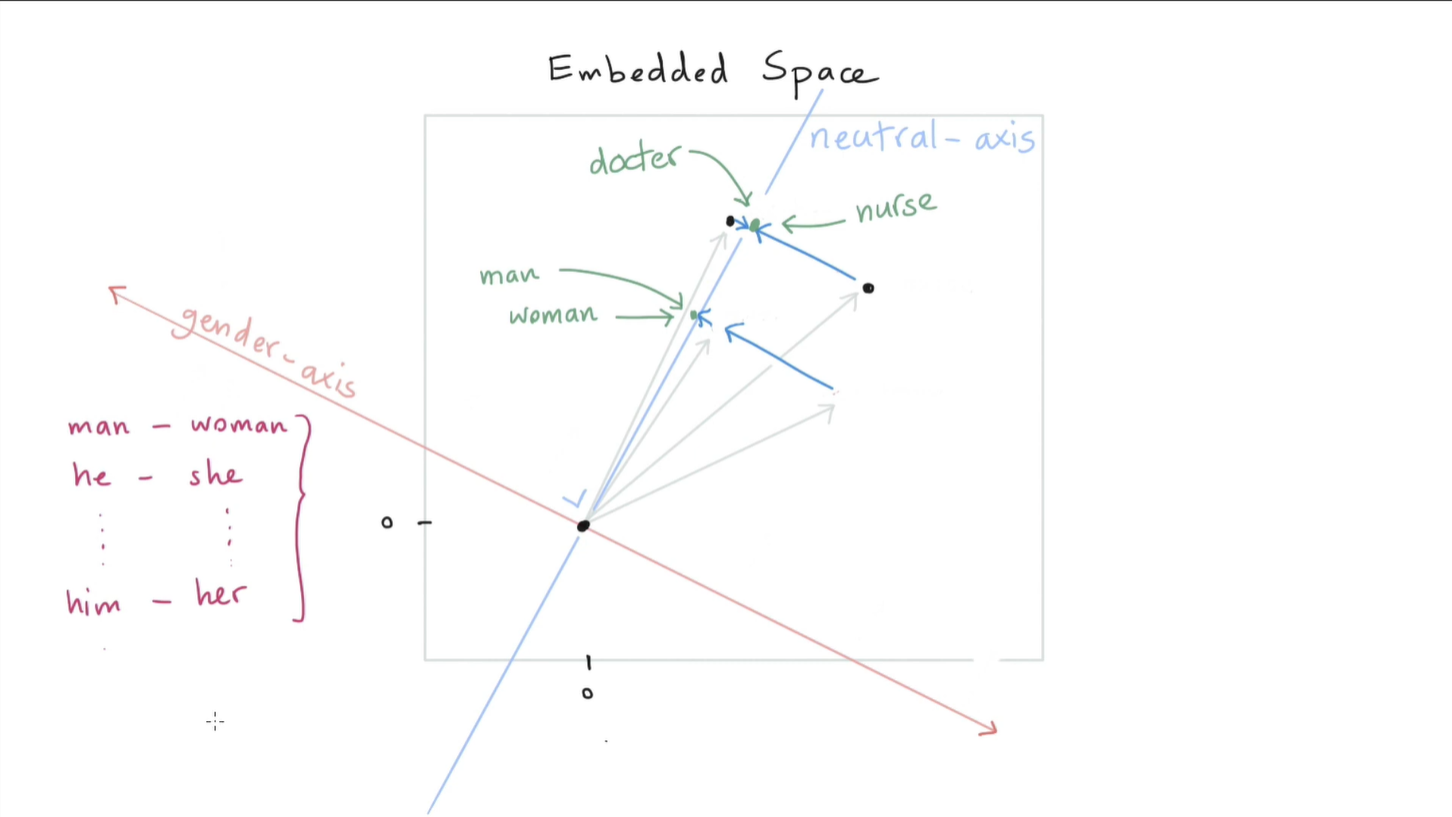 Embedded Space
neutral-axis
docter
nurse
man
woman
gender-axis
man - woman
he - she
him - her
0
0